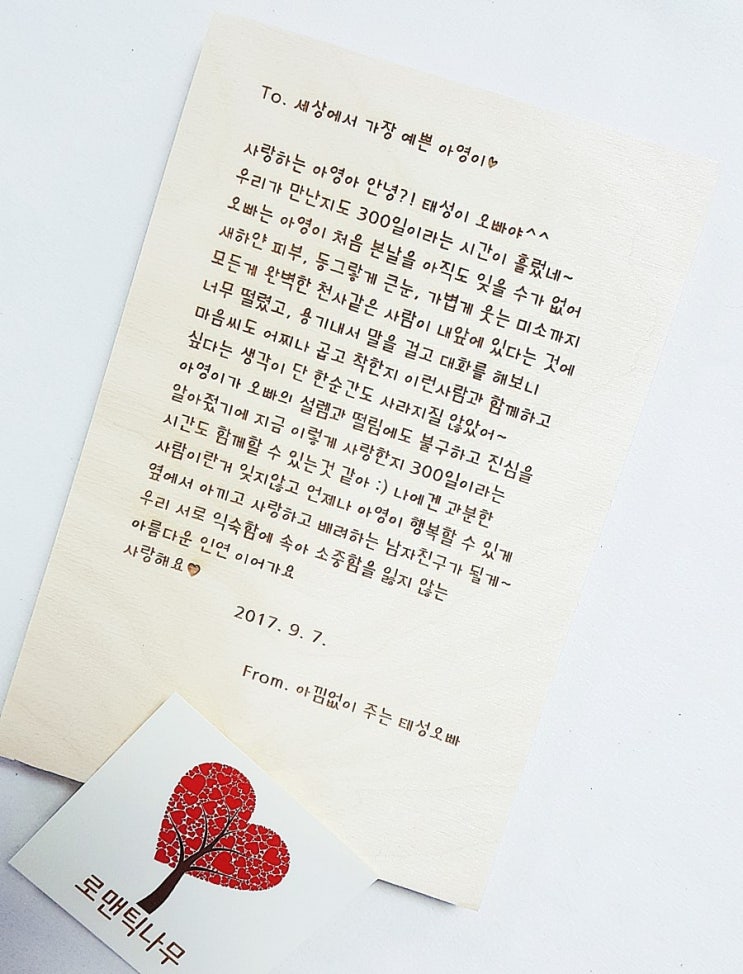 To. 세상에서 가장 예쁜 아영이♥
사랑하는 아영아 안녕?! 태성이 오빠야^^
우리가 만난지도 300일이라는 시간이 흘렀네~
오빠는 아영이 처음 본날을 아직도 잊을 수가 없어
새하얀 피부, 동그랗게 큰눈, 가볍게 웃는 미소까지
모든게 완벽한 천사같은 사람이 내앞에 있다는 것에
너무 떨렸고, 용기내서 말을 걸고 대화를 해보니
마음씨도 어찌나 곱고 착한지 이런사람과 함께하고
싶다는 생각이 단 한순간도 사라지질 않았어~
아영이가 오빠의 설렘과 떨림에도 불구하고 진심을
알아줬기에 지금 이렇게 사랑한지 300일이라는
시간도 함께할 수 있는것 같아 :) 나에겐 과분한
사람이란거 잊지않고 언제나 아영이 행복할 수 있게
옆에서 아끼고 사랑하고 배려하는 남자친구가 될게~
우리 서로 익숙함에 속아 소중함을 잃지 않는
아름다운 인연 이어가요
사랑해요♥
2017. 9. 7.
From. 아낌없이 주는 태성오빠
로맨틱나무